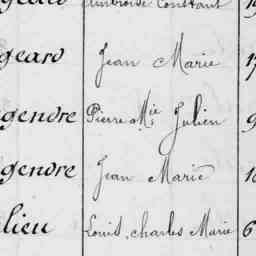 Ambroise Constant
geard Jean Marie
gendre Pierre Mie Julien
gendre Jean Marie
lieu Louis, charles Marie 6